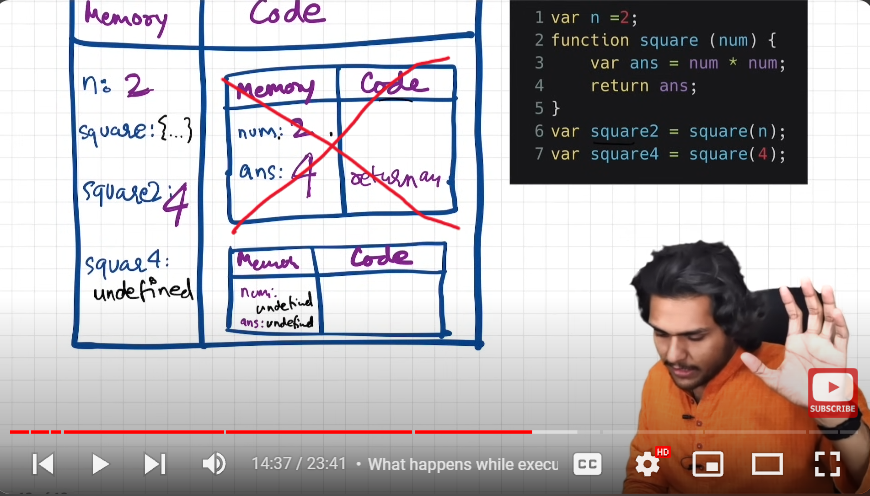 Memory
Code
n: 2
square: {...}
square2: 4
squar4:
undefined
Memory
Code
num: 2
ans: 4
return an
Code
num:
undefined
ans: undefined
1 var n =2;
2 function square (num) {
3 var ans = num * num;
4 return ans;
5 }
6 var square2 = square(n);
7 var square4 = square(4);
SUBSCRIBE
14:37 / 23:41 • What happens while execu
CC
HD